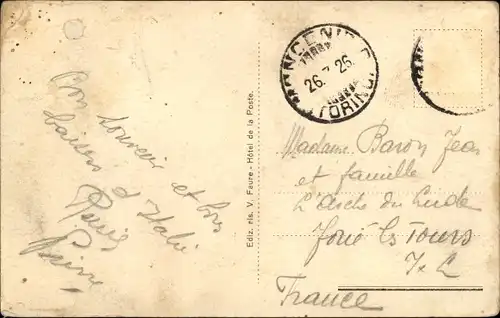 Bon souvenir et bons
baisers d'Italie
Pierre
Ediz. ris. V. Faure - Hôtel de la Poste.
MONCENISIO
26.7.26
TORINO
Madame Baron Jean
et famille
L'Arche du Lude
Joué les Tours
I. L
France